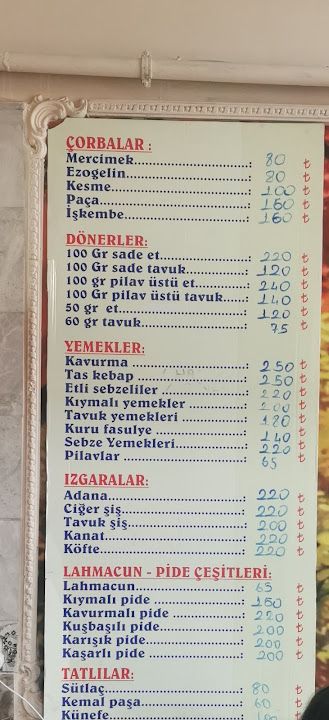 ÇORBALAR :
Mercimek : 80 ₺
Ezogelin : 80 ₺
Kesme : 100 ₺
Paça : 160 ₺
İşkembe : 160 ₺
DÖNERLER:
100 Gr sade et : 220 ₺
100 Gr sade tavuk : 120 ₺
100 gr pilav üstü et : 240 ₺
100 Gr pilav üstü tavuk : 140 ₺
50 gr et : 120 ₺
60 gr tavuk : 75 ₺
YEMEKLER:
Kavurma : 250 ₺
Tas kebap : 250 ₺
Etli sebzeliler : 220 ₺
Kıymalı yemekler : 200 ₺
Tavuk yemekleri : 180 ₺
Kuru fasulye : 140 ₺
Sebze Yemekleri : 220 ₺
Pilavlar : 65 ₺
IZGARALAR:
Adana : 220 ₺
Ciğer şiş : 220 ₺
Tavuk şiş : 200 ₺
Kanat : 220 ₺
Köfte : 220 ₺
LAHMACUN - PİDE ÇEŞİTLERİ:
Lahmacun : 65 ₺
Kıymalı pide : 150 ₺
Kavurmalı pide : 220 ₺
Kuşbaşılı pide : 200 ₺
Karışık pide : 200 ₺
Kaşarlı pide : 200 ₺
TATLILAR:
Sütlaç : 80 ₺
Kemal paşa : 60 ₺
Künefe ₺